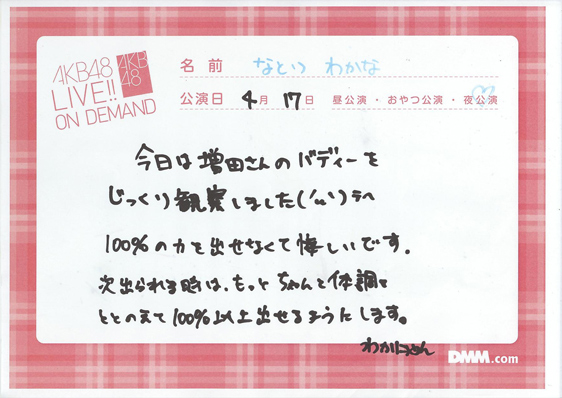 AKB48
LIVE!!
ON DEMAND
AKB
48
名前 なとり わかな
公演日 4月 17日 昼公演・おやつ公演・夜公演
今日は増田さんのバディーを
じっくり観察しました(´ω`)テヘ
100%の力を出せなくて悔しいです。
次出られる時は、もっとちゃんと体調を
ととのえて100%以上出せるようにします。
DMM.com